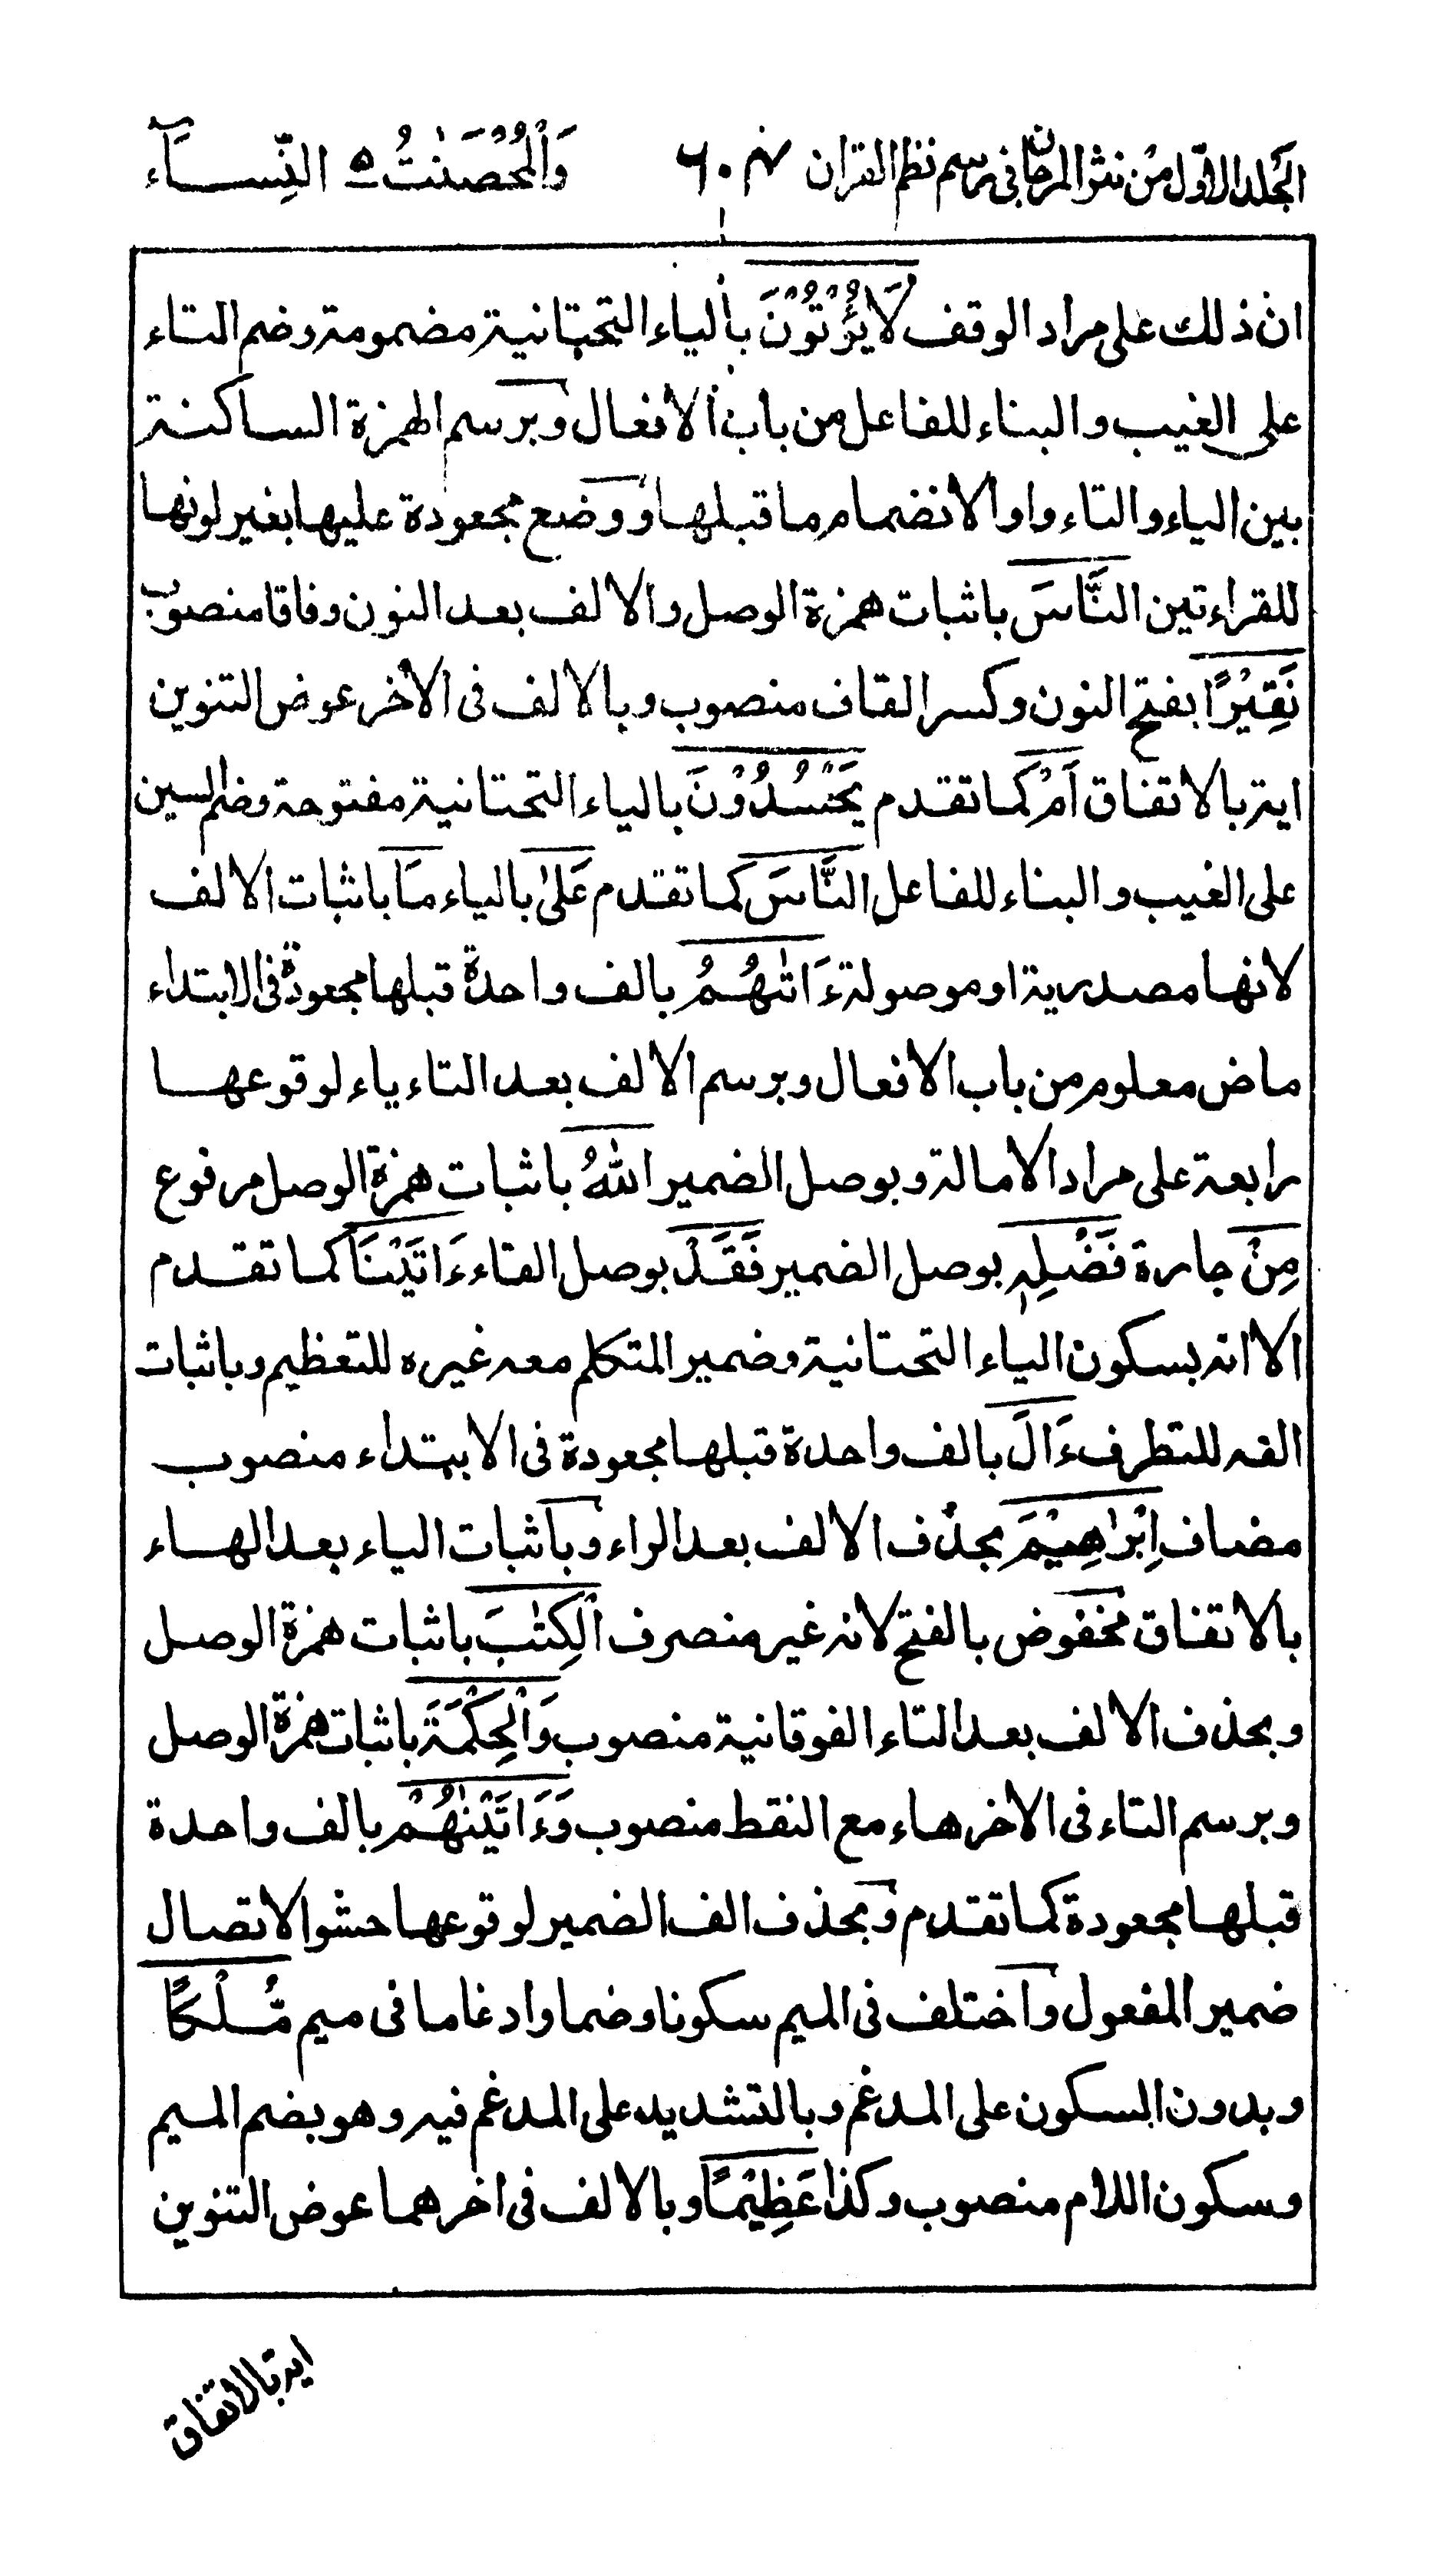 الجلد الاول من نثر المرجان في رسم نظم القران ٦٠٤ وَٱلْمُحْصَنٰتُ ٥ النِّسَآء
ان ذلك على مراد الوقف لَا يُؤْتُوْنَ بالياء التحتانية مضمومة وضم التاء
على الغيب والبناء للفاعل من باب الافعال وبرسم الهمزة الساكنة
بين الياء والتاء واوا لانضمام ما قبلها ووضع مجعودة عليها بغير لونها
للقراءتين النَّاسَ باثبات همزة الوصل والالف بعد النون وفاقا منصوب
نَقِيْرًا بفتح النون وكسر القاف منصوب وبالالف فى الاخر عوض التنوين
اية بالاتفاق اَمْ كما تقدم يَحْسُدُوْنَ بالياء التحتانية مفتوحة وضم السين
على الغيب والبناء للفاعل النَّاسَ كما تقدم عَلٰى بالياء مَا باثبات الالف
لانها مصدرية او موصولة ءَاتٰهُمُ بالف واحدة قبلها مجعودة فى الابتداء
ماض معلوم من باب الافعال وبرسم الالف بعد التاء ياء لوقوعها
رابعة على مراد الامالة وبوصل الضمير اللّٰهُ باثبات همزة الوصل مرفوع
مِنْ جارة فَضْلِهٖ بوصل الضمير فَقَدْ بوصل الفاء ءَاتَيْنَا كما تقدم
الا انه بسكون الياء التحتانية وضمير المتكلم معه غيره للتعظيم وباثبات
الفه للتطرف ءَالَ بالف واحدة قبلها مجعودة فى الابتداء منصوب
مضاف اِبْرٰهِيْمَ بحذف الالف بعد الراء وباثبات الياء بعد الهاء
بالاتفاق مخفوض بالفتح لانه غير منصرف ٱلْكِتٰبَ باثبات همزة الوصل
وبحذف الالف بعد التاء الفوقانية منصوب وَٱلْحِكْمَةَ باثبات همزة الوصل
وبرسم التاء فى الاخر هاء مع النقط منصوب وَءَاتَيْنٰهُمْ بالف واحدة
قبلها مجعودة كما تقدم وبحذف الف الضمير لوقوعها حشوا لاتصال
ضمير المفعول واختلف فى الميم سكونا وضما وادغاما فى ميم مُّلْكًا
وبدون السكون على المدغم وبالتشديد على المدغم فيه وهو بضم الميم
وسكون اللام منصوب وكذا عَظِيْمًا وبالالف فى اخرهما عوض التنوين
اية بالاتفاق